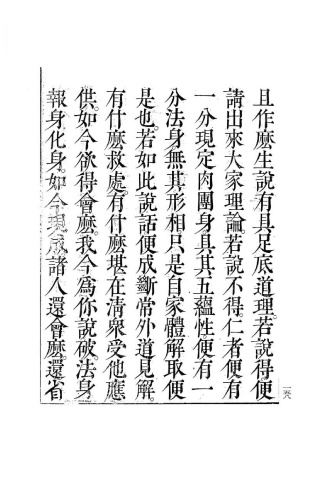 且作麼生說有具足底道理。若說得便
請出來大家理論。若說不得。仁者便有
一分現定肉團身具其五蘊性便有一
分法身無其形相只是自家體解取便
是也。若如此說話便成斷常外道見解。
有什麼救處。有什麼堪在清衆受他應
供。如今欲得會麼。我今爲你說破。法身
報身化身。如今現成諸人還會麼。還省
一六八